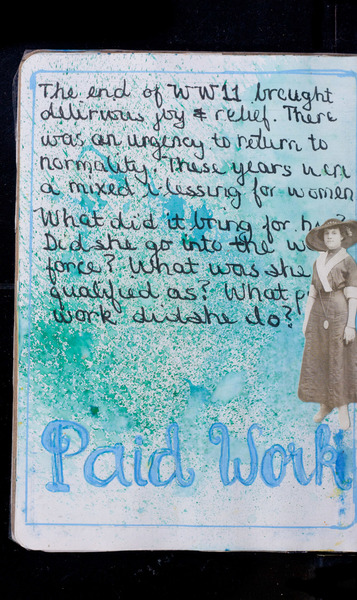 The end of WW11 brought
delirious joy & relief. There
was an urgency to return to
normality. These years were
a mixed blessing for women
What did it bring for h ?
Did she go into the w
force? What was she
qualified as? What p
work did she do?
Paid Work